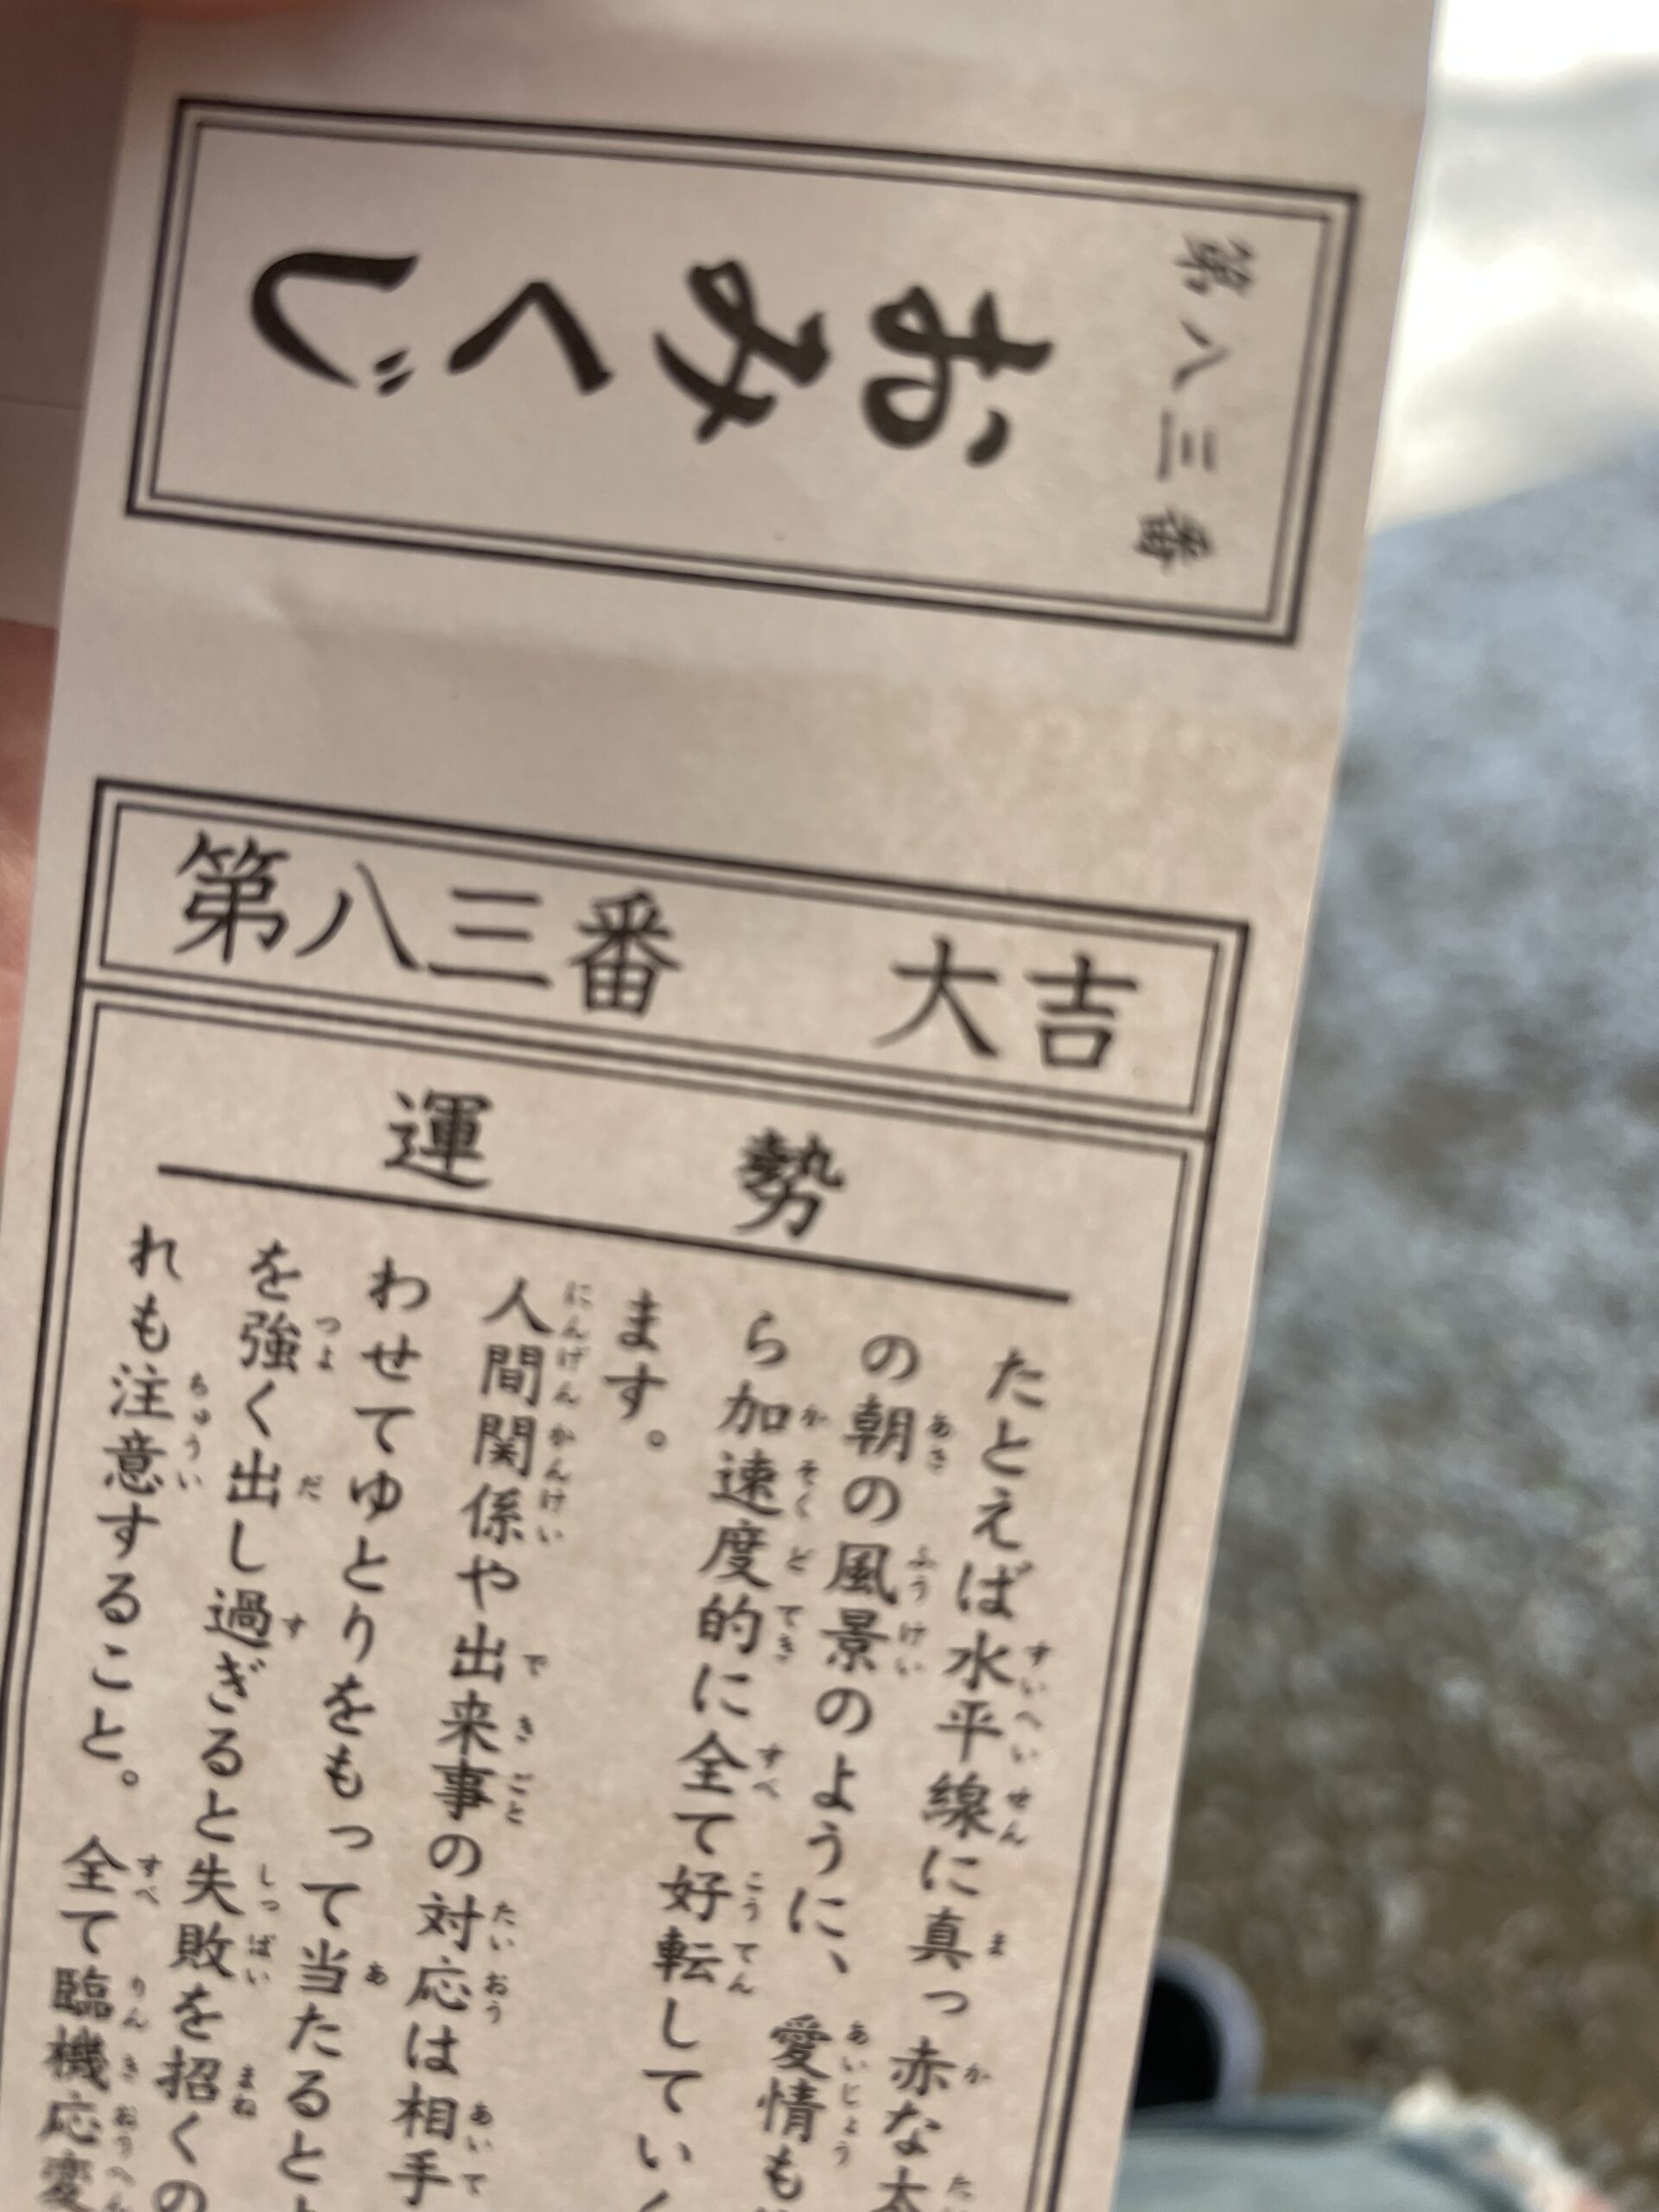 第八三番
おみくじ
第八三番 大吉
運勢
たとえば水平線に真っ赤な太
の朝の風景のように、愛情も
ら加速度的に全て好転してい
ます。
人間関係や出来事の対応は相手
わせてゆとりをもって当たると
を強く出し過ぎると失敗を招くの
れも注意すること。全て臨機応変